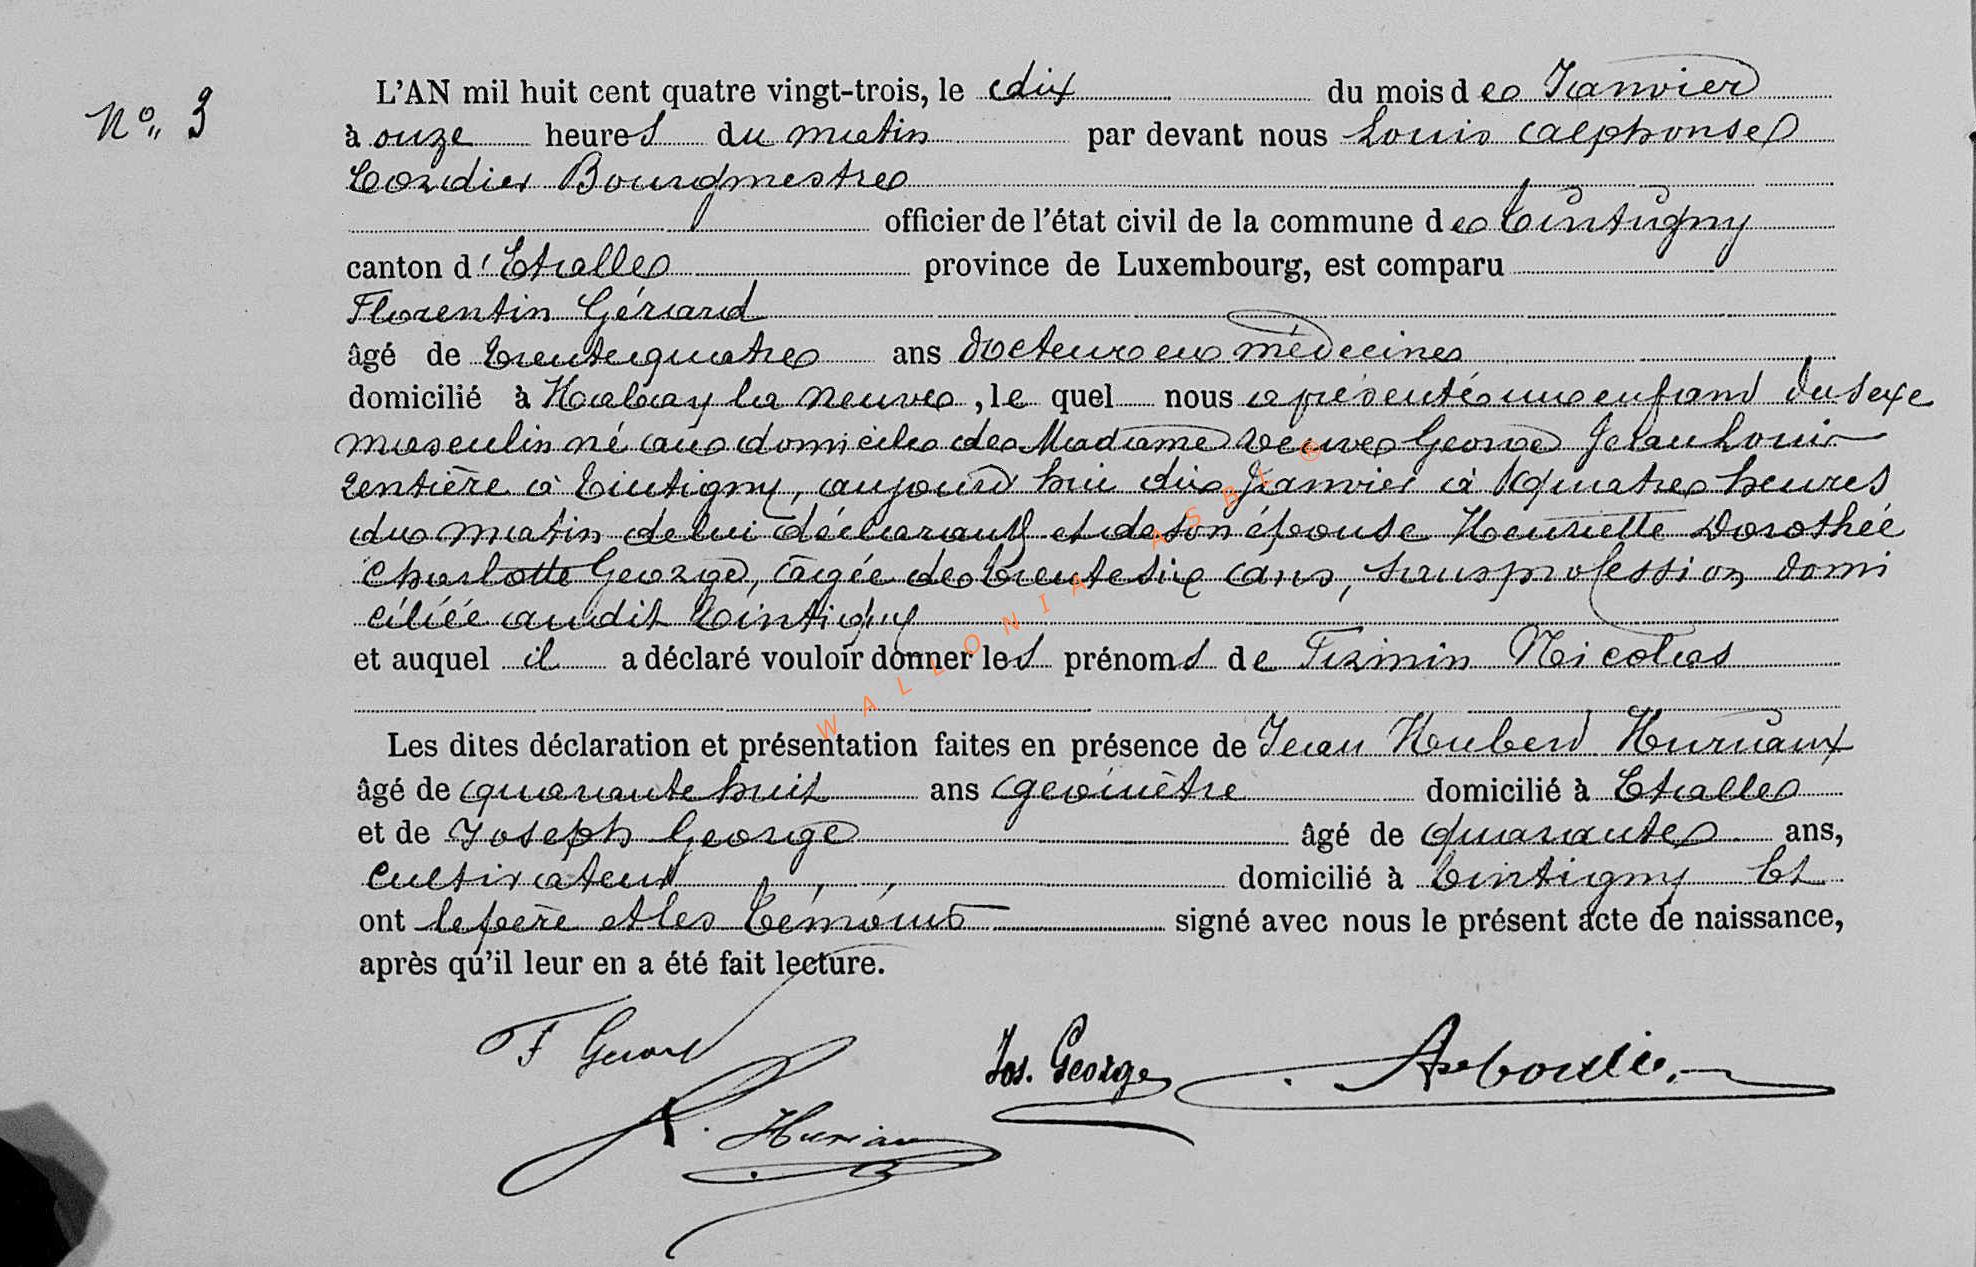 N° 3
L'AN mil huit cent quatre vingt-trois, le dix du mois de Janvier
à onze heures du matin par devant nous Louis Alphonse
Cordier Bourgmestre
officier de l'état civil de la commune de Tintigny
canton d'Etalle province de Luxembourg, est comparu
Florentin Gérard
âgé de trente quatre ans docteur en médecine
domicilié à Habay la neuve, le quel nous a présenté un enfant du sexe
masculin né au domicile de Madame veuve George Jean Louis
rentière à Tintigny, aujourd hui dix Janvier à quatre heures
du matin de lui déclarant et de son épouse Henriette Dorothée
Charlotte George, âgée de trente six ans, sans profession domi
ciliée audit Tintigny
et auquel il a déclaré vouloir donner les prénoms de Firmin Nicolas
Les dites déclaration et présentation faites en présence de Jean Hubert Huriaux
âgé de quarante huit ans géomètre domicilié à Etalle
et de Joseph George âgé de quarante ans,
cultivateur domicilié à Tintigny Et
ont le père et les témoins signé avec nous le présent acte de naissance,
après qu'il leur en a été fait lecture.
F Gerard
Jos. George
Huriau
WALLONIA ASBL ®